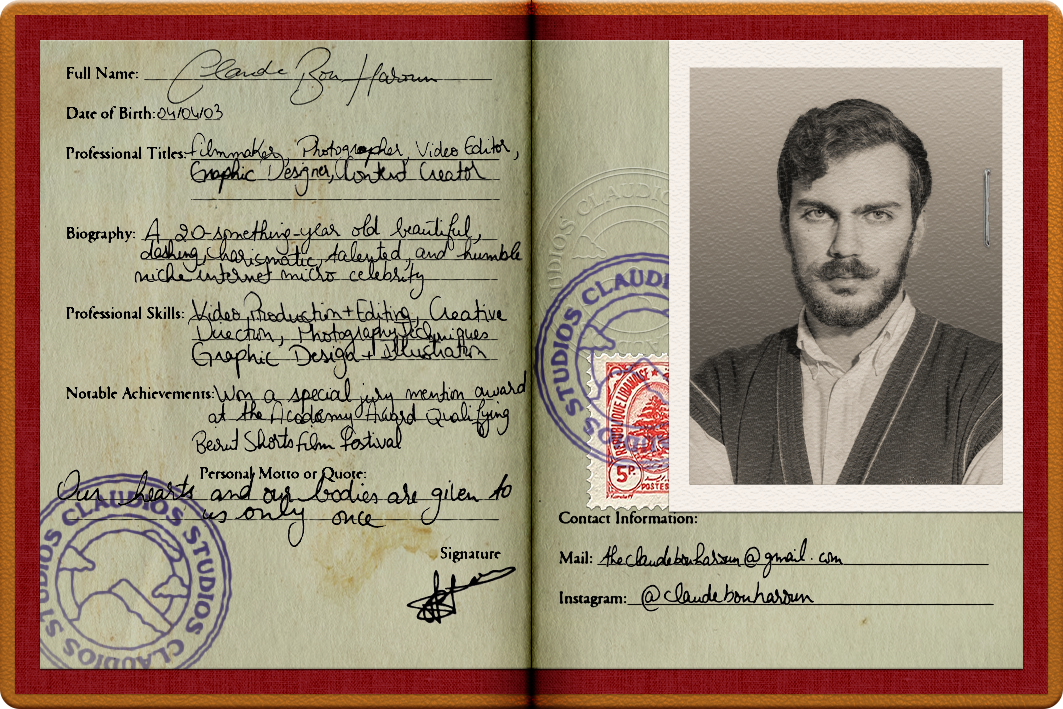 Full Name: Claude Bou Haroun
Date of Birth: 04/04/03
Professional Titles: Filmmaker, Photographer, Video Editor,
Graphic Designer, Content Creator
Biography: A 20-something-year old beautiful,
dashing, charismatic, talented, and humble
niche internet micro celebrity
Professional Skills: Video Production + Editing, Creative
Direction, Photography Techniques
Graphic Design + Illustration
Notable Achievements: Won a special jury mention award
at the Academy Award Qualifying
Beirut Shorts Film Festival
Personal Motto or Quote:
Our hearts and our bodies are given to
us only once
Signature
CLAUDIOS STUDIOS CLAUDIOS STUDIOS
STUDIOS CLAUDIOS
STUDIOS CLAUDIOS
REPUBLIQUE LIBANAISE
5 P.
POSTES
Contact Information:
Mail: theclaudebouharoun@gmail.com
Instagram: @claudebouharoun